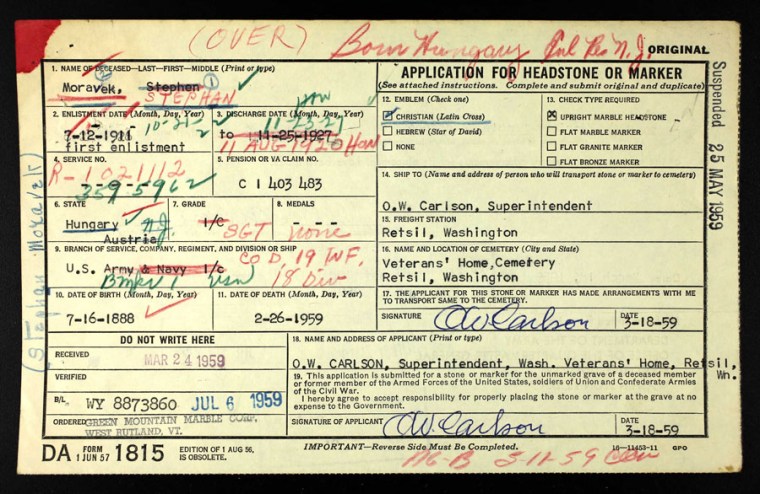 (OVER) Born Hungary Pvt Res N.J. ORIGINAL
1. NAME OF DECEASED—LAST—FIRST—MIDDLE (Print or type)
Moravek, Stephen
② ①
STEPHAN
2. ENLISTMENT DATE (Month, Day, Year)
7-12-1911
first enlistment
10-21-2
3. DISCHARGE DATE (Month, Day, Year)
11-23-21
to 11-25-1927
11 AUG 1920 Hon
4. SERVICE NO.
R-1021112
359-5962
5. PENSION OR VA CLAIM NO.
C 1 403 483
6. STATE
Hungary N.J.
Austria
7. GRADE
1/c SGT
8. MEDALS
- - -
none
9. BRANCH OF SERVICE, COMPANY, REGIMENT, AND DIVISION OR SHIP
U.S. Army & Navy 1/c
CO D, 19 INF,
18 Div
Bmkr 1 USN
10. DATE OF BIRTH (Month, Day, Year)
7-16-1888
11. DATE OF DEATH (Month, Day, Year)
2-26-1959
DO NOT WRITE HERE
RECEIVED
MAR 24 1959
VERIFIED
B/L WY 8873860 JUL 6 1959
ORDERED GREEN MOUNTAIN MARBLE COMP.
WEST RUTLAND, VT.
APPLICATION FOR HEADSTONE OR MARKER
(See attached instructions. Complete and submit original and duplicate)
12. EMBLEM (Check one)
CHRISTIAN (Latin Cross)
HEBREW (Star of David)
NONE
13. CHECK TYPE REQUIRED
X UPRIGHT MARBLE HEADSTONE
FLAT MARBLE MARKER
FLAT GRANITE MARKER
FLAT BRONZE MARKER
14. SHIP TO (Name and address of person who will transport stone or marker to cemetery)
O.W. Carlson, Superintendent
15. FREIGHT STATION
Retsil, Washington
16. NAME AND LOCATION OF CEMETERY (City and State)
Veterans' Home, Cemetery
Retsil, Washington
17. THE APPLICANT FOR THIS STONE OR MARKER HAS MADE ARRANGEMENTS WITH ME
TO TRANSPORT SAME TO THE CEMETERY.
SIGNATURE OW Carlson DATE
3-18-59
18. NAME AND ADDRESS OF APPLICANT (Print or type)
O.W. CARLSON, Superintendent, Wash. Veterans' Home, Retsil,
Wn.
19. This application is submitted for a stone or marker for the unmarked grave of a deceased member
or former member of the Armed Forces of the United States, soldiers of Union and Confederate Armies
of the Civil War.
I hereby agree to accept responsibility for properly placing the stone or marker at the grave at no
expense to the Government.
SIGNATURE OF APPLICANT OW Carlson DATE
3-18-59
DA FORM 1 JUN 57 1815 EDITION OF 1 AUG 56, IS OBSOLETE.
IMPORTANT—Reverse Side Must Be Completed.
16—11453-11 GPO
5-11-59
Suspended 25 MAY 1959
(Stephan Moravek)